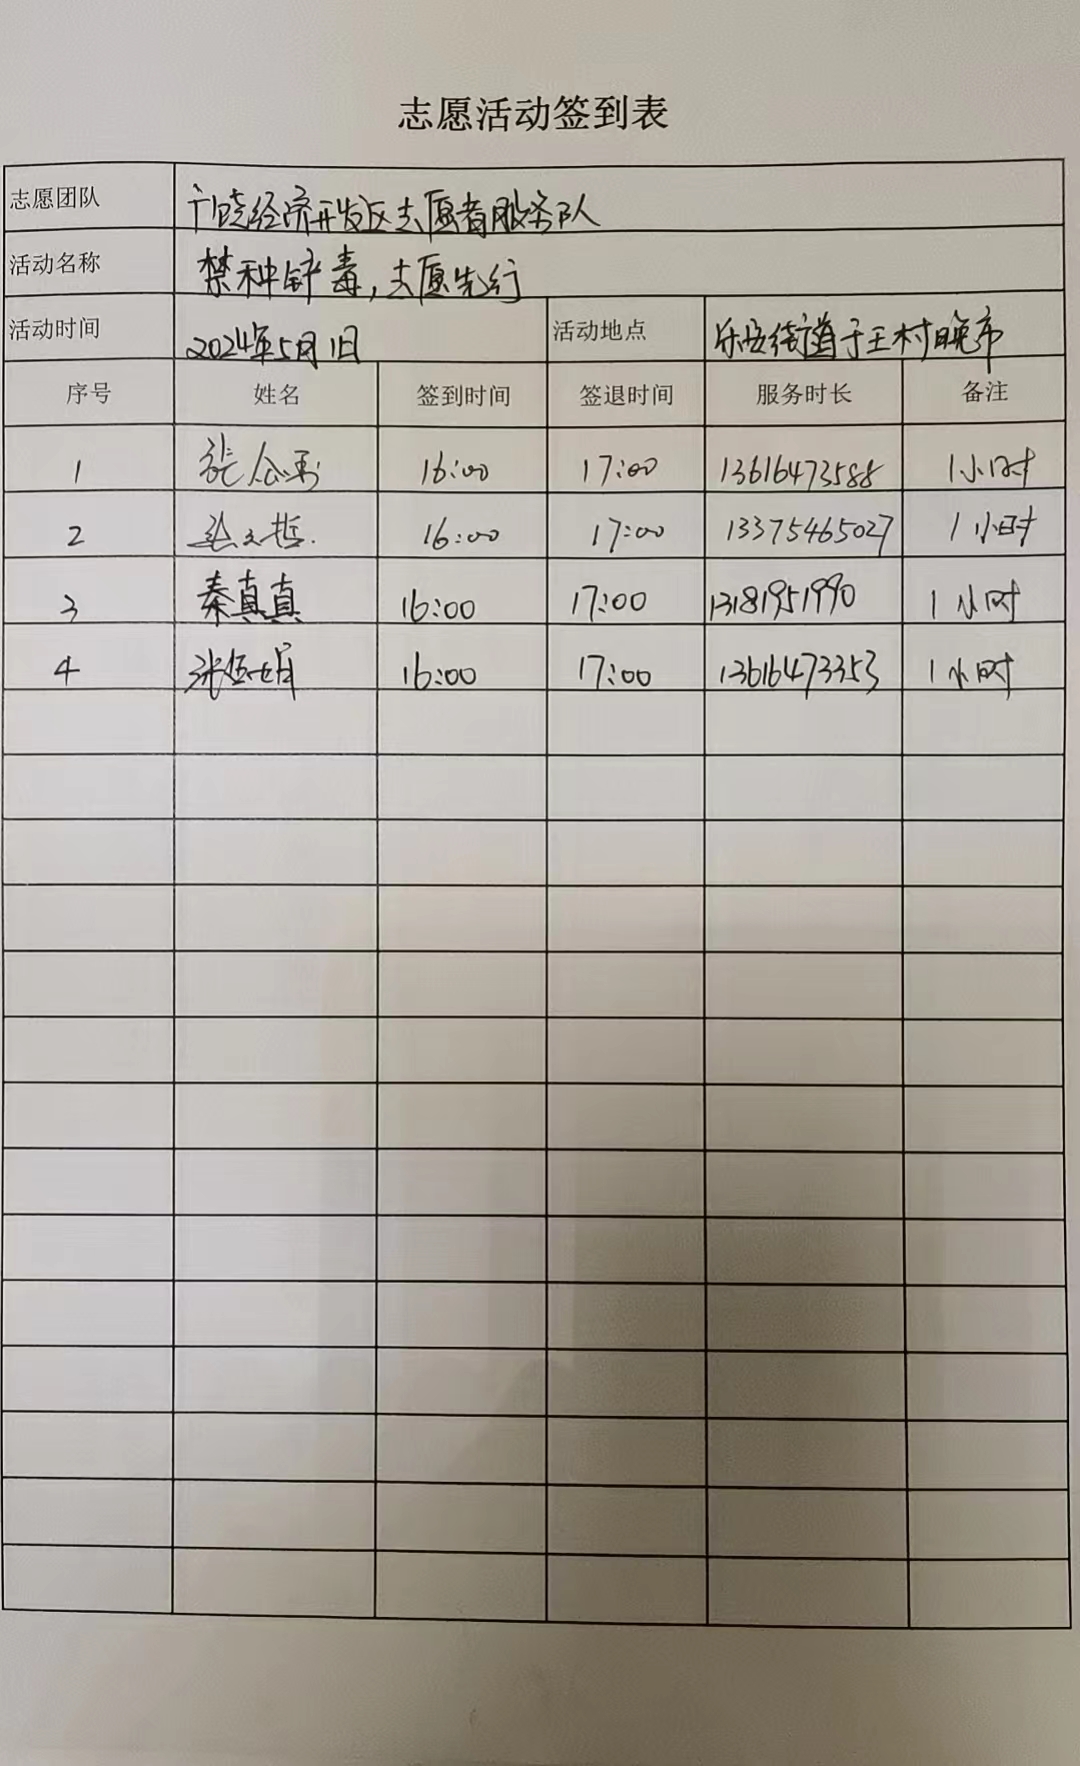 志愿活动签到表
志愿团队 广饶经济开发区志愿者服务队
活动名称 禁种铲毒,志愿先行
活动时间 2024年5月1日 活动地点 乐安街道于王村晚市
序号 姓名 签到时间 签退时间 服务时长 备注
1 张 16:00 17:00 13616473588 1小时
2 16:00 17:00 13375465027 1小时
3 秦真真 16:00 17:00 13181951990 1小时
4 张伍娟 16:00 17:00 13616473353 1小时